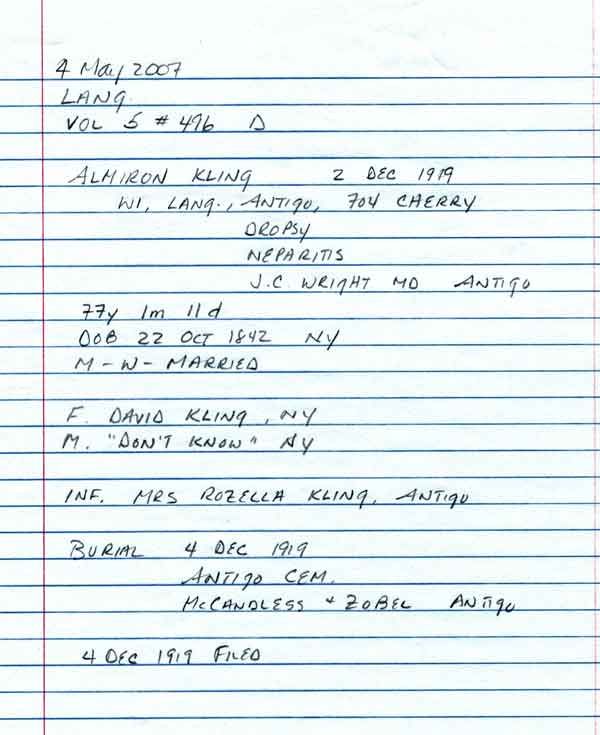 4 May 2007
LANG.
VOL 5 # 496 D
ALMIRON KLING 2 DEC 1919
WI, LANG., ANTIGO, 704 CHERRY
DROPSY
NEPARITIS
J.C. WRIGHT MD ANTIGO
77y 1m 11d
DOB 22 OCT 1842 NY
M - W - MARRIED
F. DAVID KLING, NY
M. "DON'T KNOW" NY
INF. MRS ROZELLA KLING, ANTIGO
BURIAL 4 DEC 1919
ANTIGO CEM.
McCANDLESS + ZOBEL ANTIGO
4 DEC 1919 FILED